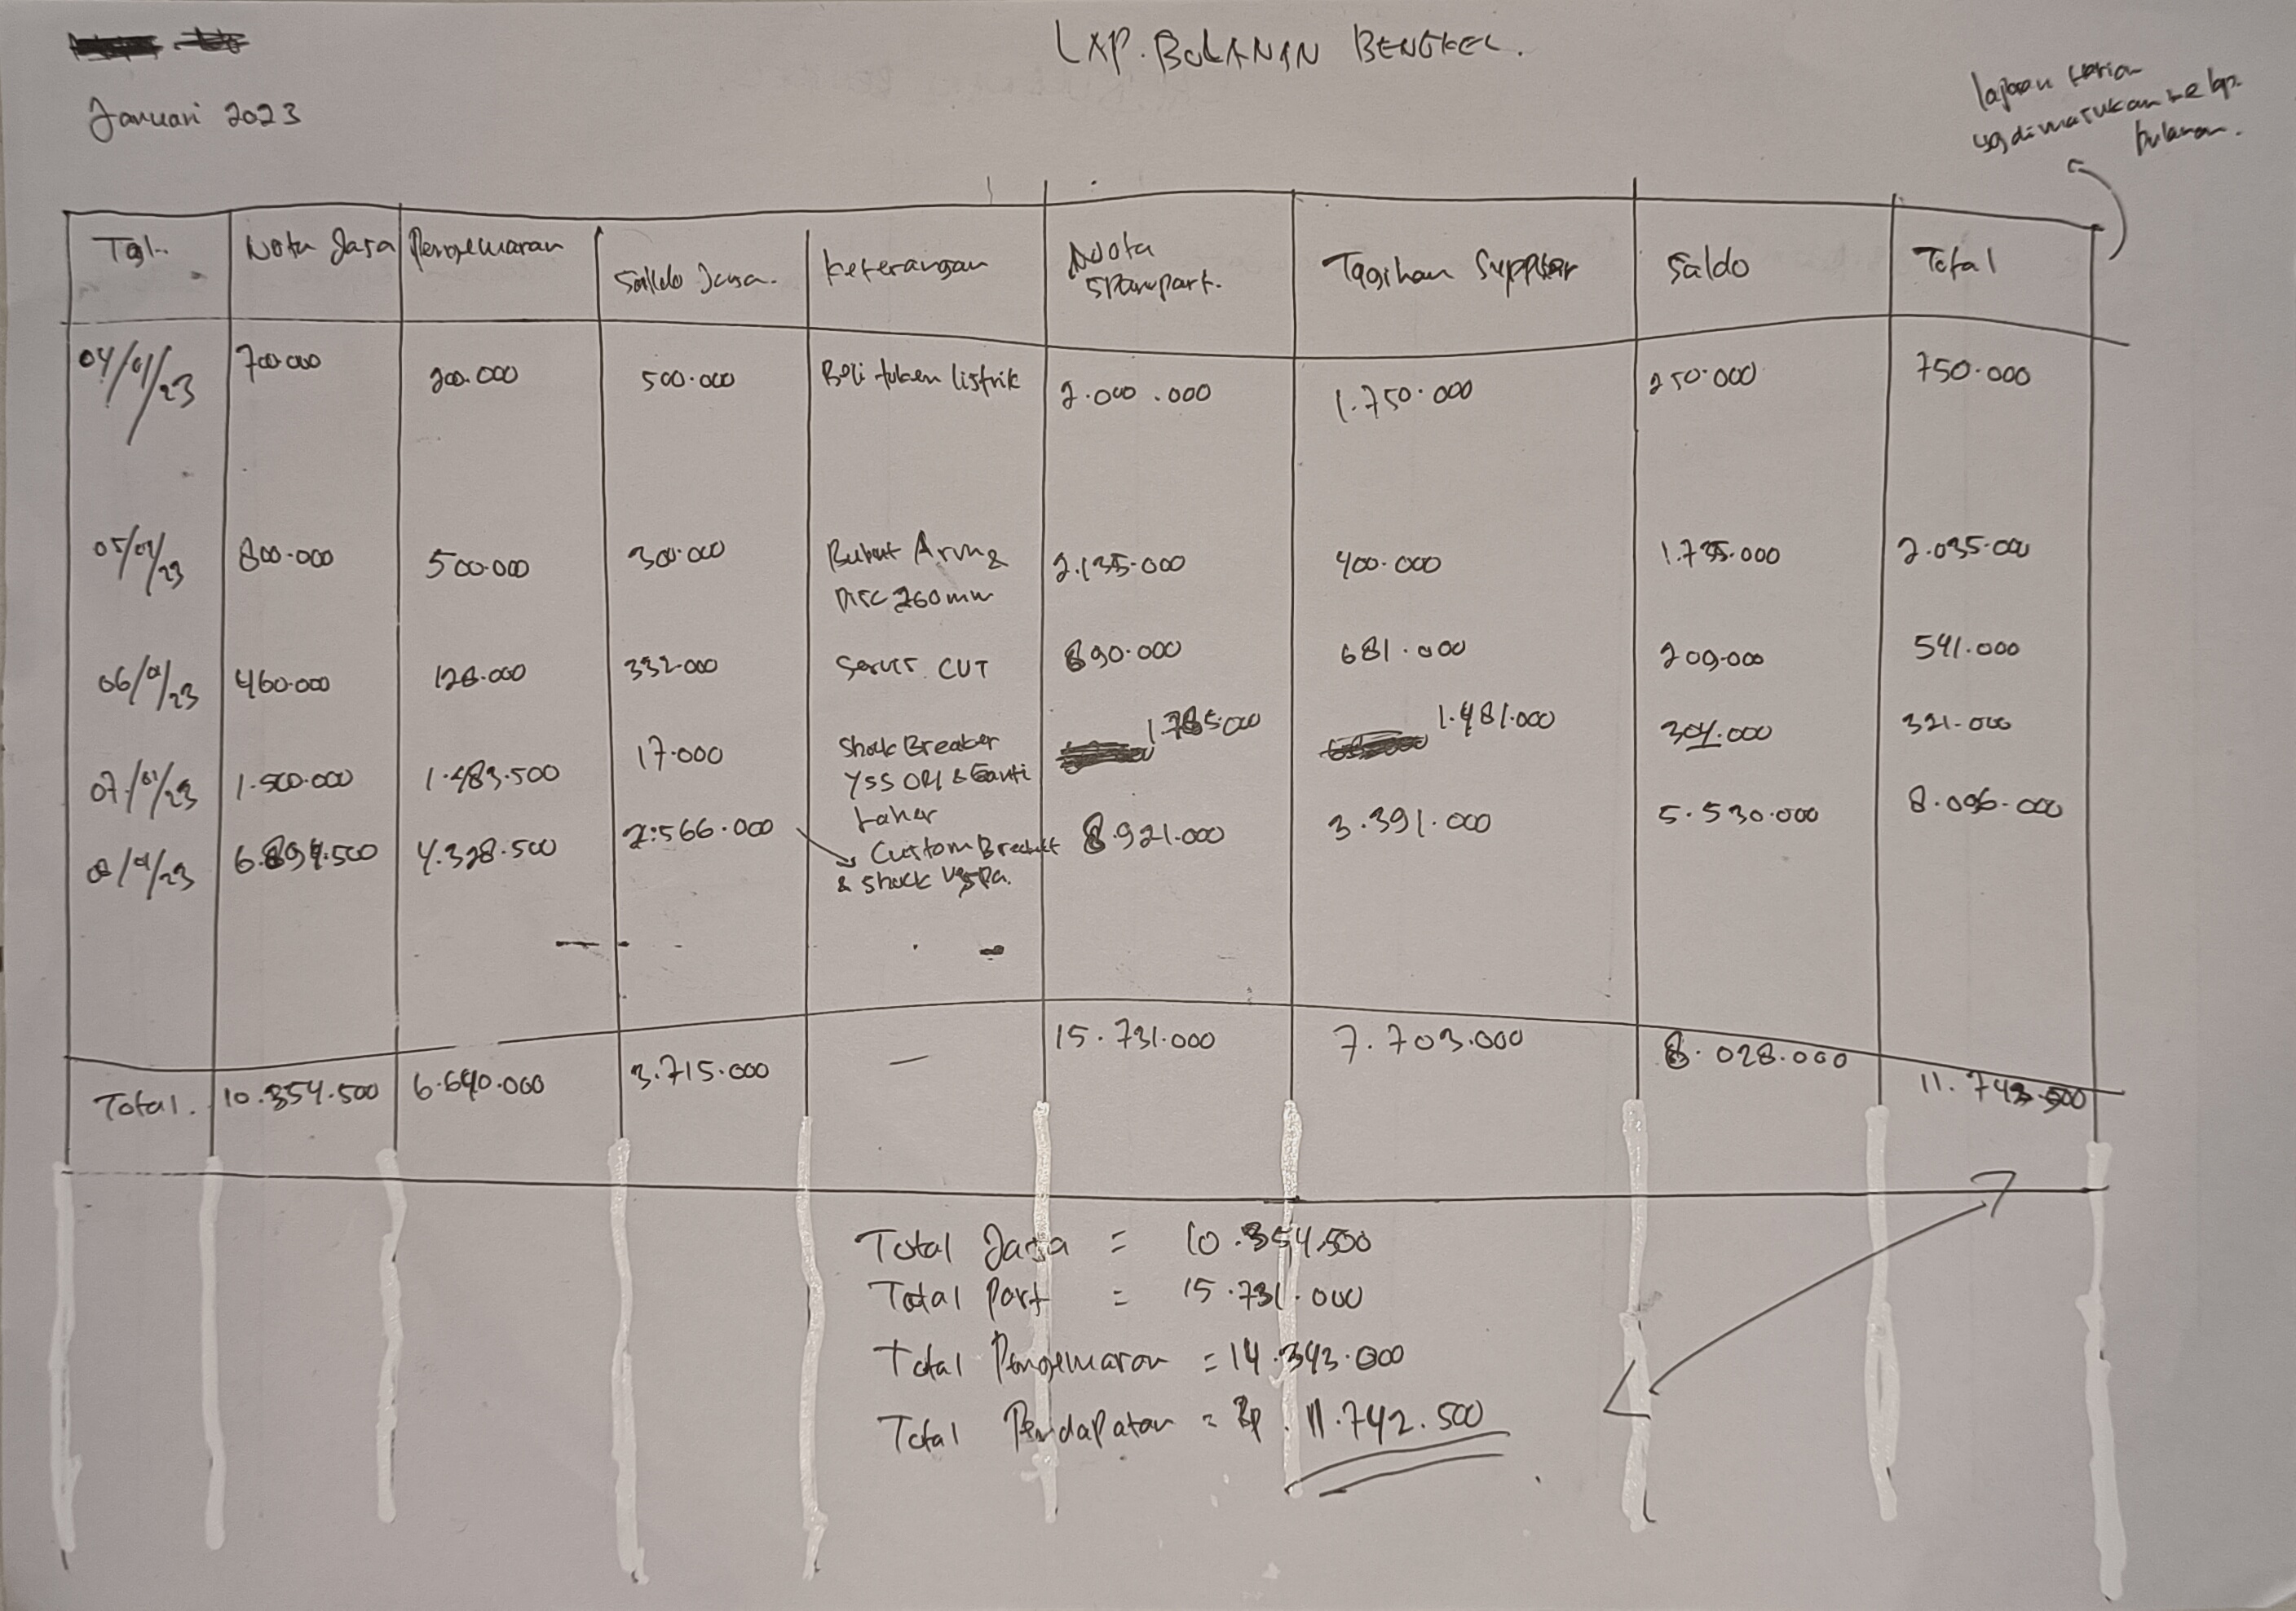 LAP. BULANAN BENGKEL.
Januari 2023
laporan harian
yg dimasukan ke lap.
bulanan.
Tgl. Nota Jasa Pengeluaran Saldo Jasa. Keterangan Nota Sparepart. Tagihan Supplier Saldo Total
04/01/23 700.000 200.000 500.000 Beli token listrik 2.000.000 1.750.000 250.000 750.000
05/01/23 800.000 500.000 300.000 Bubut Arm & 2.135.000 400.000 1.735.000 2.035.000
Disc 260mm
06/01/23 460.000 128.000 332.000 Servis CUT 890.000 681.000 209.000 541.000
07/01/23 1.500.000 1.483.500 17.000 Shock Breaker 1.785.000 1.481.000 304.000 321.000
YSS ORI & Ganti
Laher
08/01/23 6.894.500 4.328.500 2.566.000 Custom Bracket 8.921.000 3.391.000 5.530.000 8.096.000
& Shock Vespa.
Total. 10.354.500 6.640.000 3.715.000 — 15.731.000 7.703.000 8.028.000 11.743.000
Total Jasa = 10.354.500
Total Part = 15.731.000
Total Pengeluaran = 14.343.000
Total Pendapatan = Rp. 11.742.500